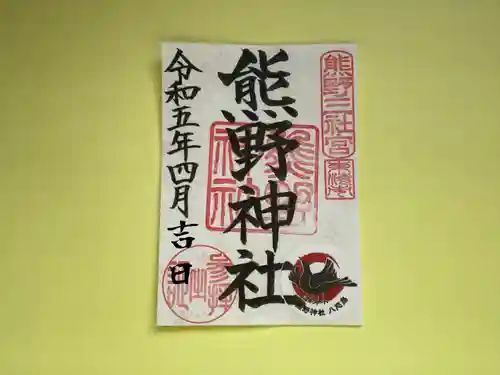 熊野三社宮
熊野神社
令和五年四月吉日
熊野神社
熊野神社 八咫烏